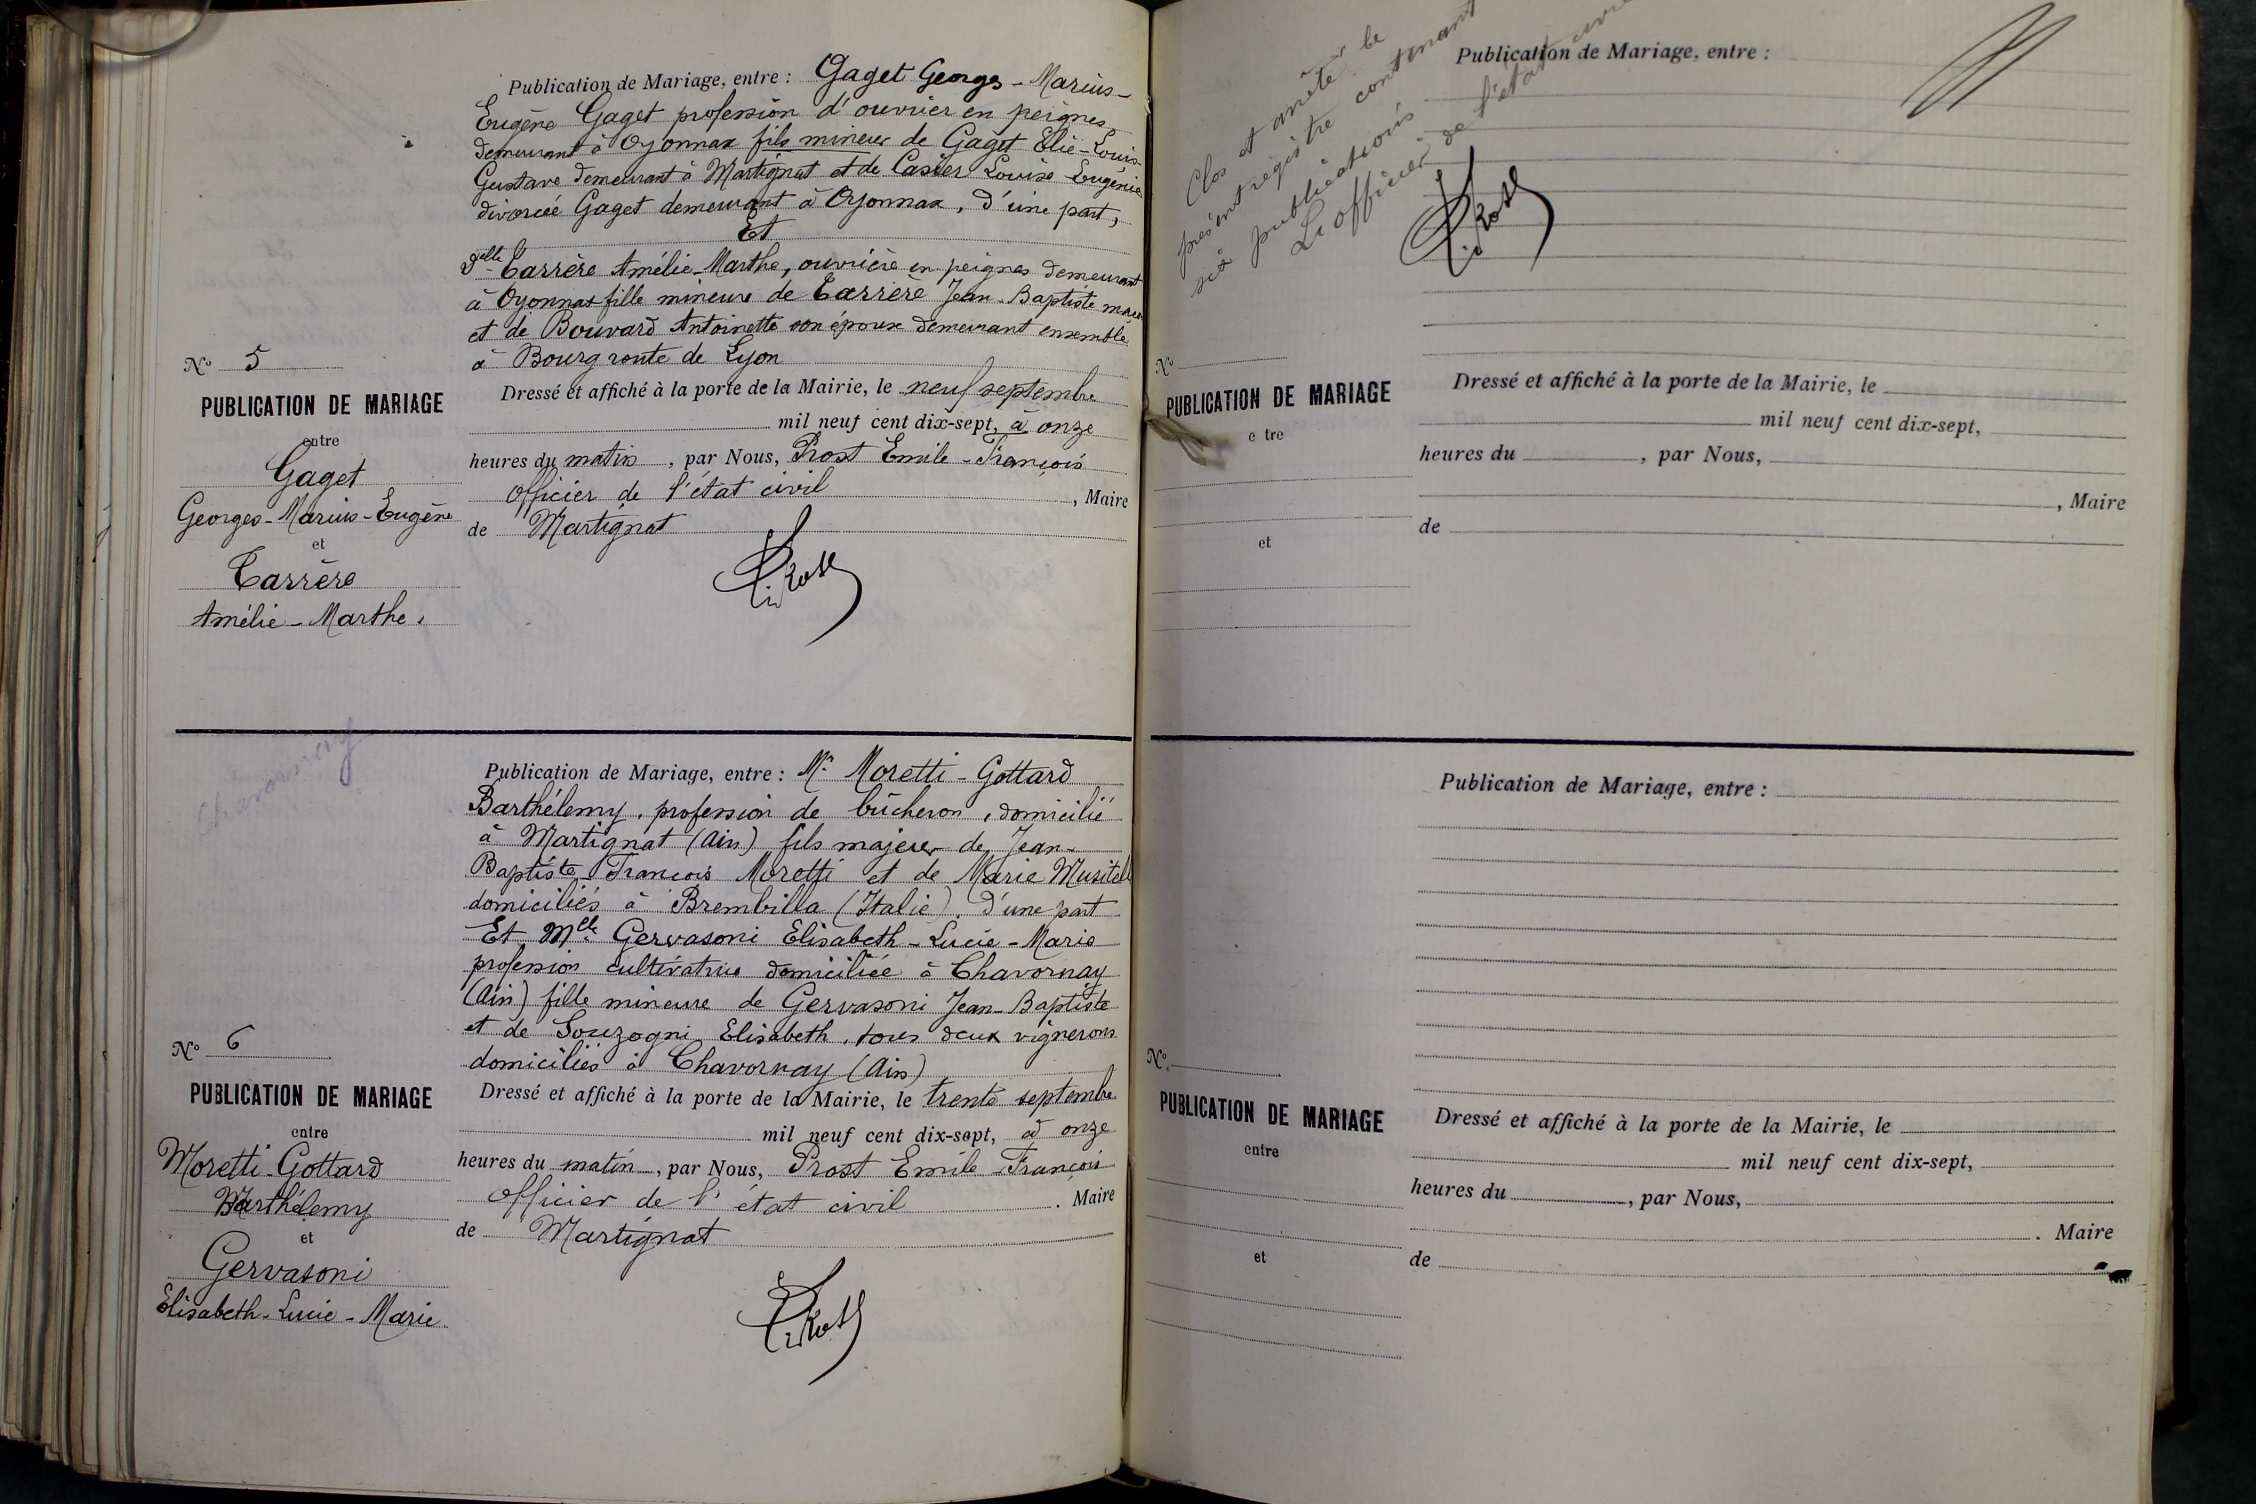 Publication de Mariage, entre : Gaget Georges - Marius -
Eugène Gaget profession d'ouvrier en peignes
demeurant à Oyonnax fils mineur de Gaget Elie - Louis -
Gustave demeurant à Martignat et de Casier Louise Eugénie
divorcée Gaget demeurant à Oyonnax, d'une part,
Et
Delle Carrère Amélie - Marthe, ouvrière en peignes demeurant
à Oyonnax fille mineure de Carrère Jean - Baptiste
et de Bouvard Antoinette son épouse demeurant ensemble
à Bourg route de Lyon
Dressé et affiché à la porte de la Mairie, le neuf septembre
mil neuf cent dix-sept, à onze
heures du matin, par Nous, Prost Emile - François
officier de l'état civil, Maire
de Martignat
Prost
No 5
PUBLICATION DE MARIAGE
entre
Gaget
Georges - Marius - Eugène
et
Carrère
Amélie - Marthe.
Chavornay
Publication de Mariage, entre : Mr Moretti - Gottard
Barthélemy, profession de bûcheron, domicilié
à Martignat (Ain) fils majeur de Jean -
Baptiste - François Moretti et de Marie Musitel
domiciliés à Brembilla (Italie). D'une part
Et Melle Gervasoni Elisabeth - Lucie - Marie
profession cultivatrice domiciliée à Chavornay
(Ain) fille mineure de Gervasoni Jean - Baptiste
et de Souzogni Elisabeth, tous deux vignerons
domiciliés à Chavornay (Ain)
Dressé et affiché à la porte de la Mairie, le trente septembre
mil neuf cent dix-sept, à onze
heures du matin, par Nous, Prost Emile - François
officier de l'état civil . Maire
de Martignat
Prost
No 6
PUBLICATION DE MARIAGE
entre
Moretti - Gottard
Barthélemy
et
Gervasoni
Elisabeth - Lucie - Marie
Clos et arrêté le
présent régistre contenant
six publications
L'officier de l'état civil
Prost
Publication de Mariage, entre :
Dressé et affiché à la porte de la Mairie, le
mil neuf cent dix-sept,
heures du , par Nous,
, Maire
de
No
PUBLICATION DE MARIAGE
e tre
et
Publication de Mariage, entre :
Dressé et affiché à la porte de la Mairie, le
mil neuf cent dix-sept,
heures du , par Nous,
. Maire
de
No
PUBLICATION DE MARIAGE
entre
et